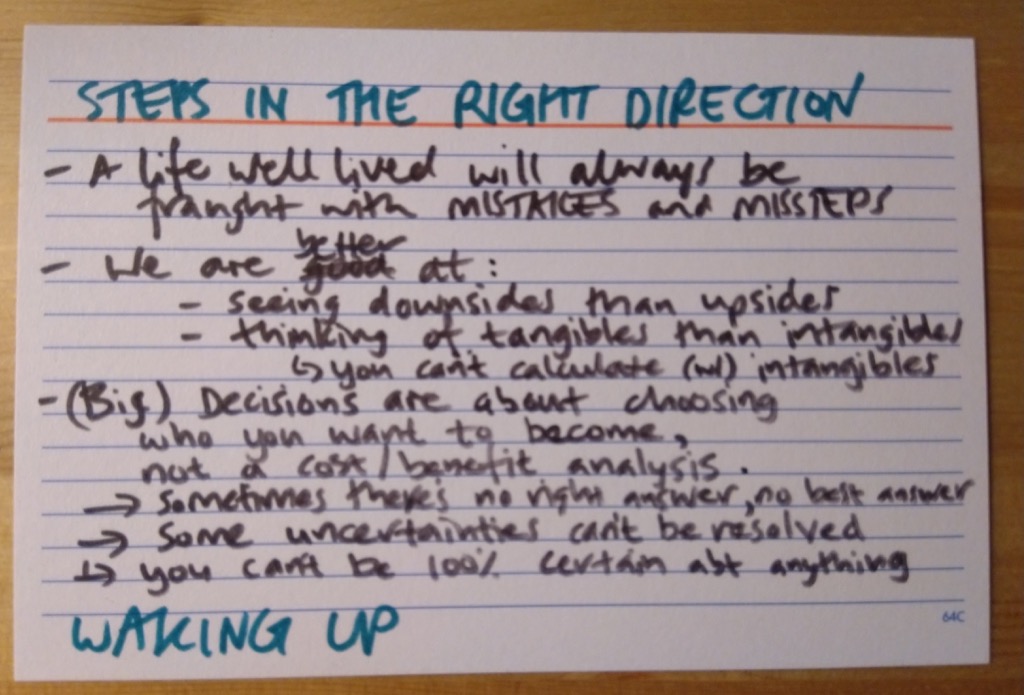 STEPS IN THE RIGHT DIRECTION
- A life well lived will always be
fraught with MISTAKES and MISSTEPS
better
- We are good at:
- seeing downsides than upsides
- thinking of tangibles than intangibles
↳ you can't calculate (w/) intangibles
- (Big) Decisions are about choosing
who you want to become,
not a cost/benefit analysis.
→ sometimes there's no right answer, no best answer
→ some uncertainties can't be resolved
↳ you can't be 100% certain abt anything
64C
WAKING UP